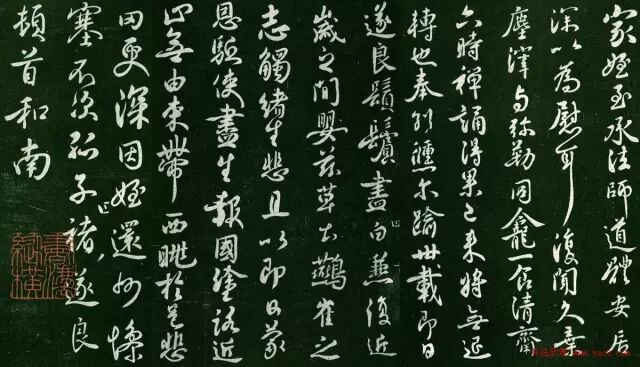 家姪至承法師道體安居
深以為慰耳復聞久棄
塵滓与弥勒同龕一食清齋
六時禅誦得果已来將無退
轉也奉別倏尔踰卅載即日
遂良鬚鬢盡白兼復近
歲之間嬰兹草土鷰雀之
志觸緒生悲且以即日蒙
恩驅使盡生報國塗路近
止無由束帶西眺於邑悲
罔更深因姪還州慘
塞不次孤子褚遂良
頓首和南